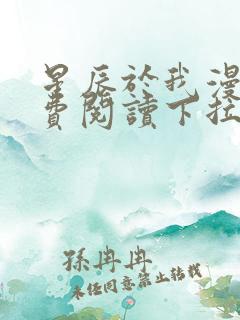 星辰於我漫
費閱讀下拉
孫冉冉
未经同意禁止转载